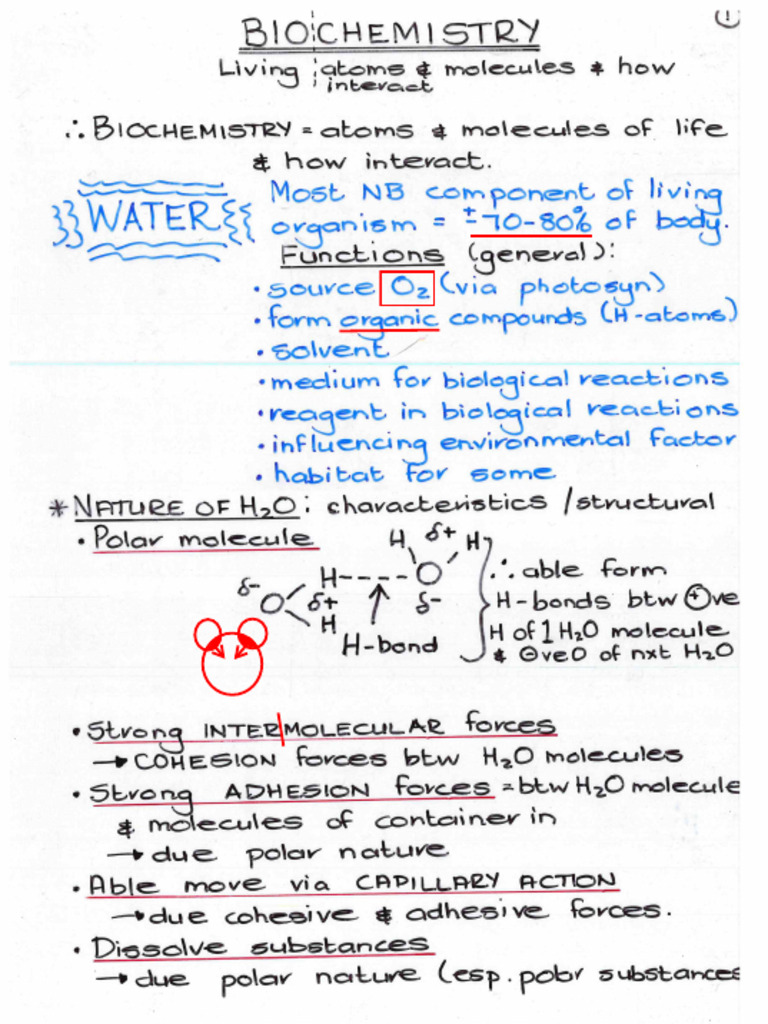 1
BIOCHEMISTRY
Living atoms & molecules & how
interact
∴ BIOCHEMISTRY = atoms & molecules of life
& how interact.
WATER
Most NB component of living
organism = ± 70-80% of body.
Functions (general):
• source O₂ (via photosyn)
• form organic compounds (H-atoms)
• solvent
• medium for biological reactions
• reagent in biological reactions
• influencing environmental factor
• habitat for some
* NATURE OF H₂O : characteristics / structural
• Polar molecule
H δ+ H
δ- H----O
O δ+ δ-
H
H-bond
∴ able form
H-bonds btw ⊕ve
H of 1 H₂O molecule
& ⊖ve O of nxt H₂O
• Strong INTER|MOLECULAR forces
→ COHESION forces btw H₂O molecules
• Strong ADHESION forces = btw H₂O molecule
& molecules of container in
→ due polar nature
• Able move via CAPILLARY ACTION
→ due cohesive & adhesive forces.
• Dissolve substances
→ due polar nature (esp. polar substances